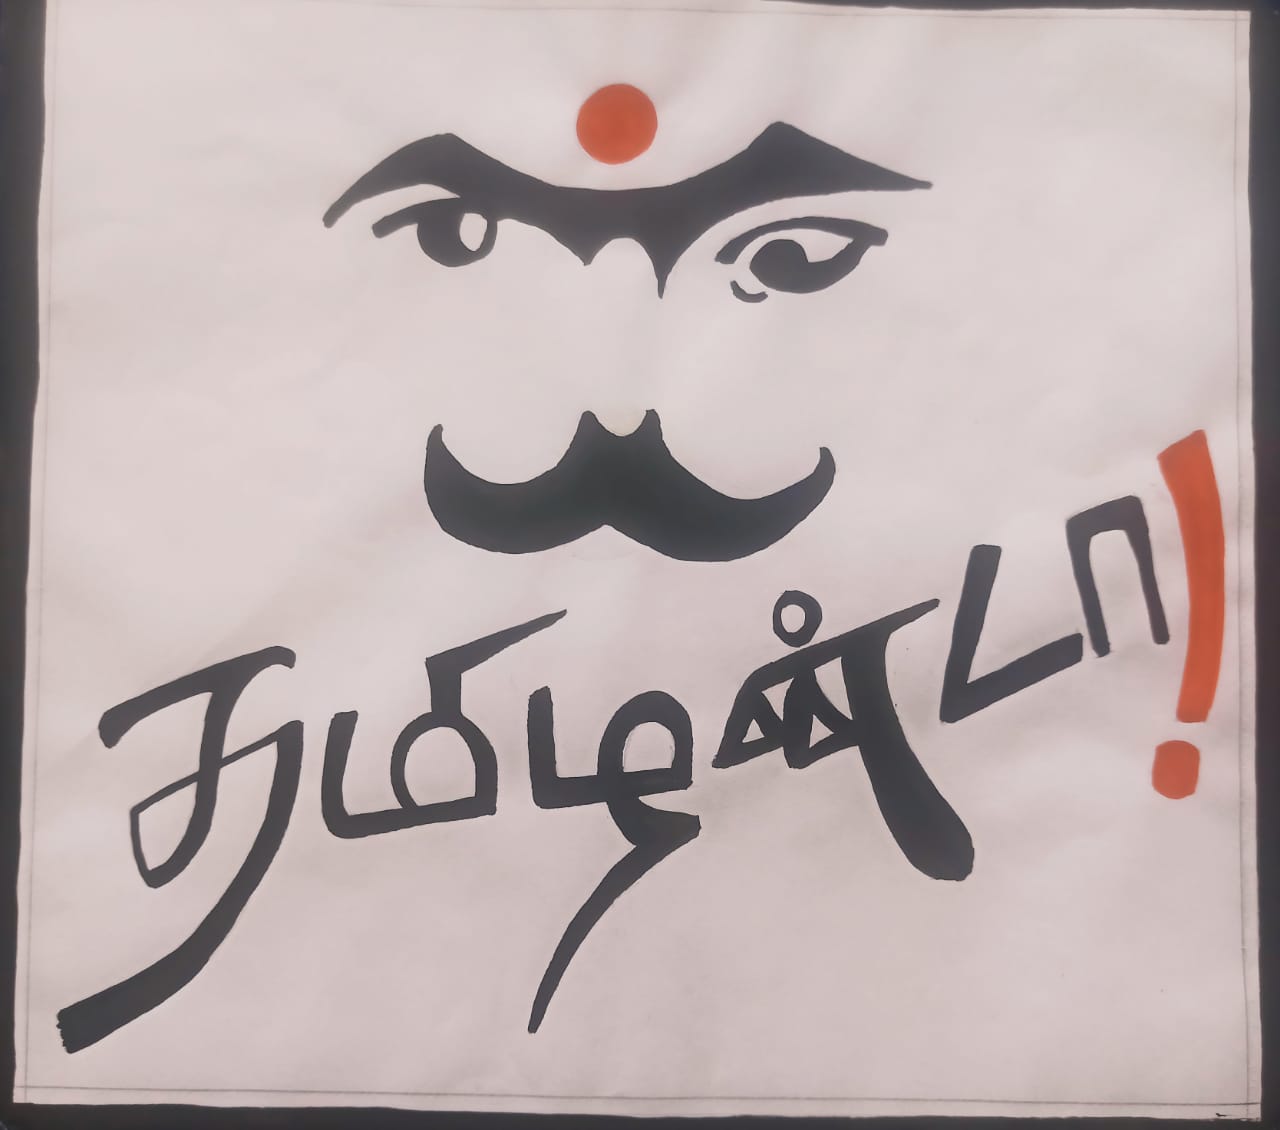 தமிழன்டா!